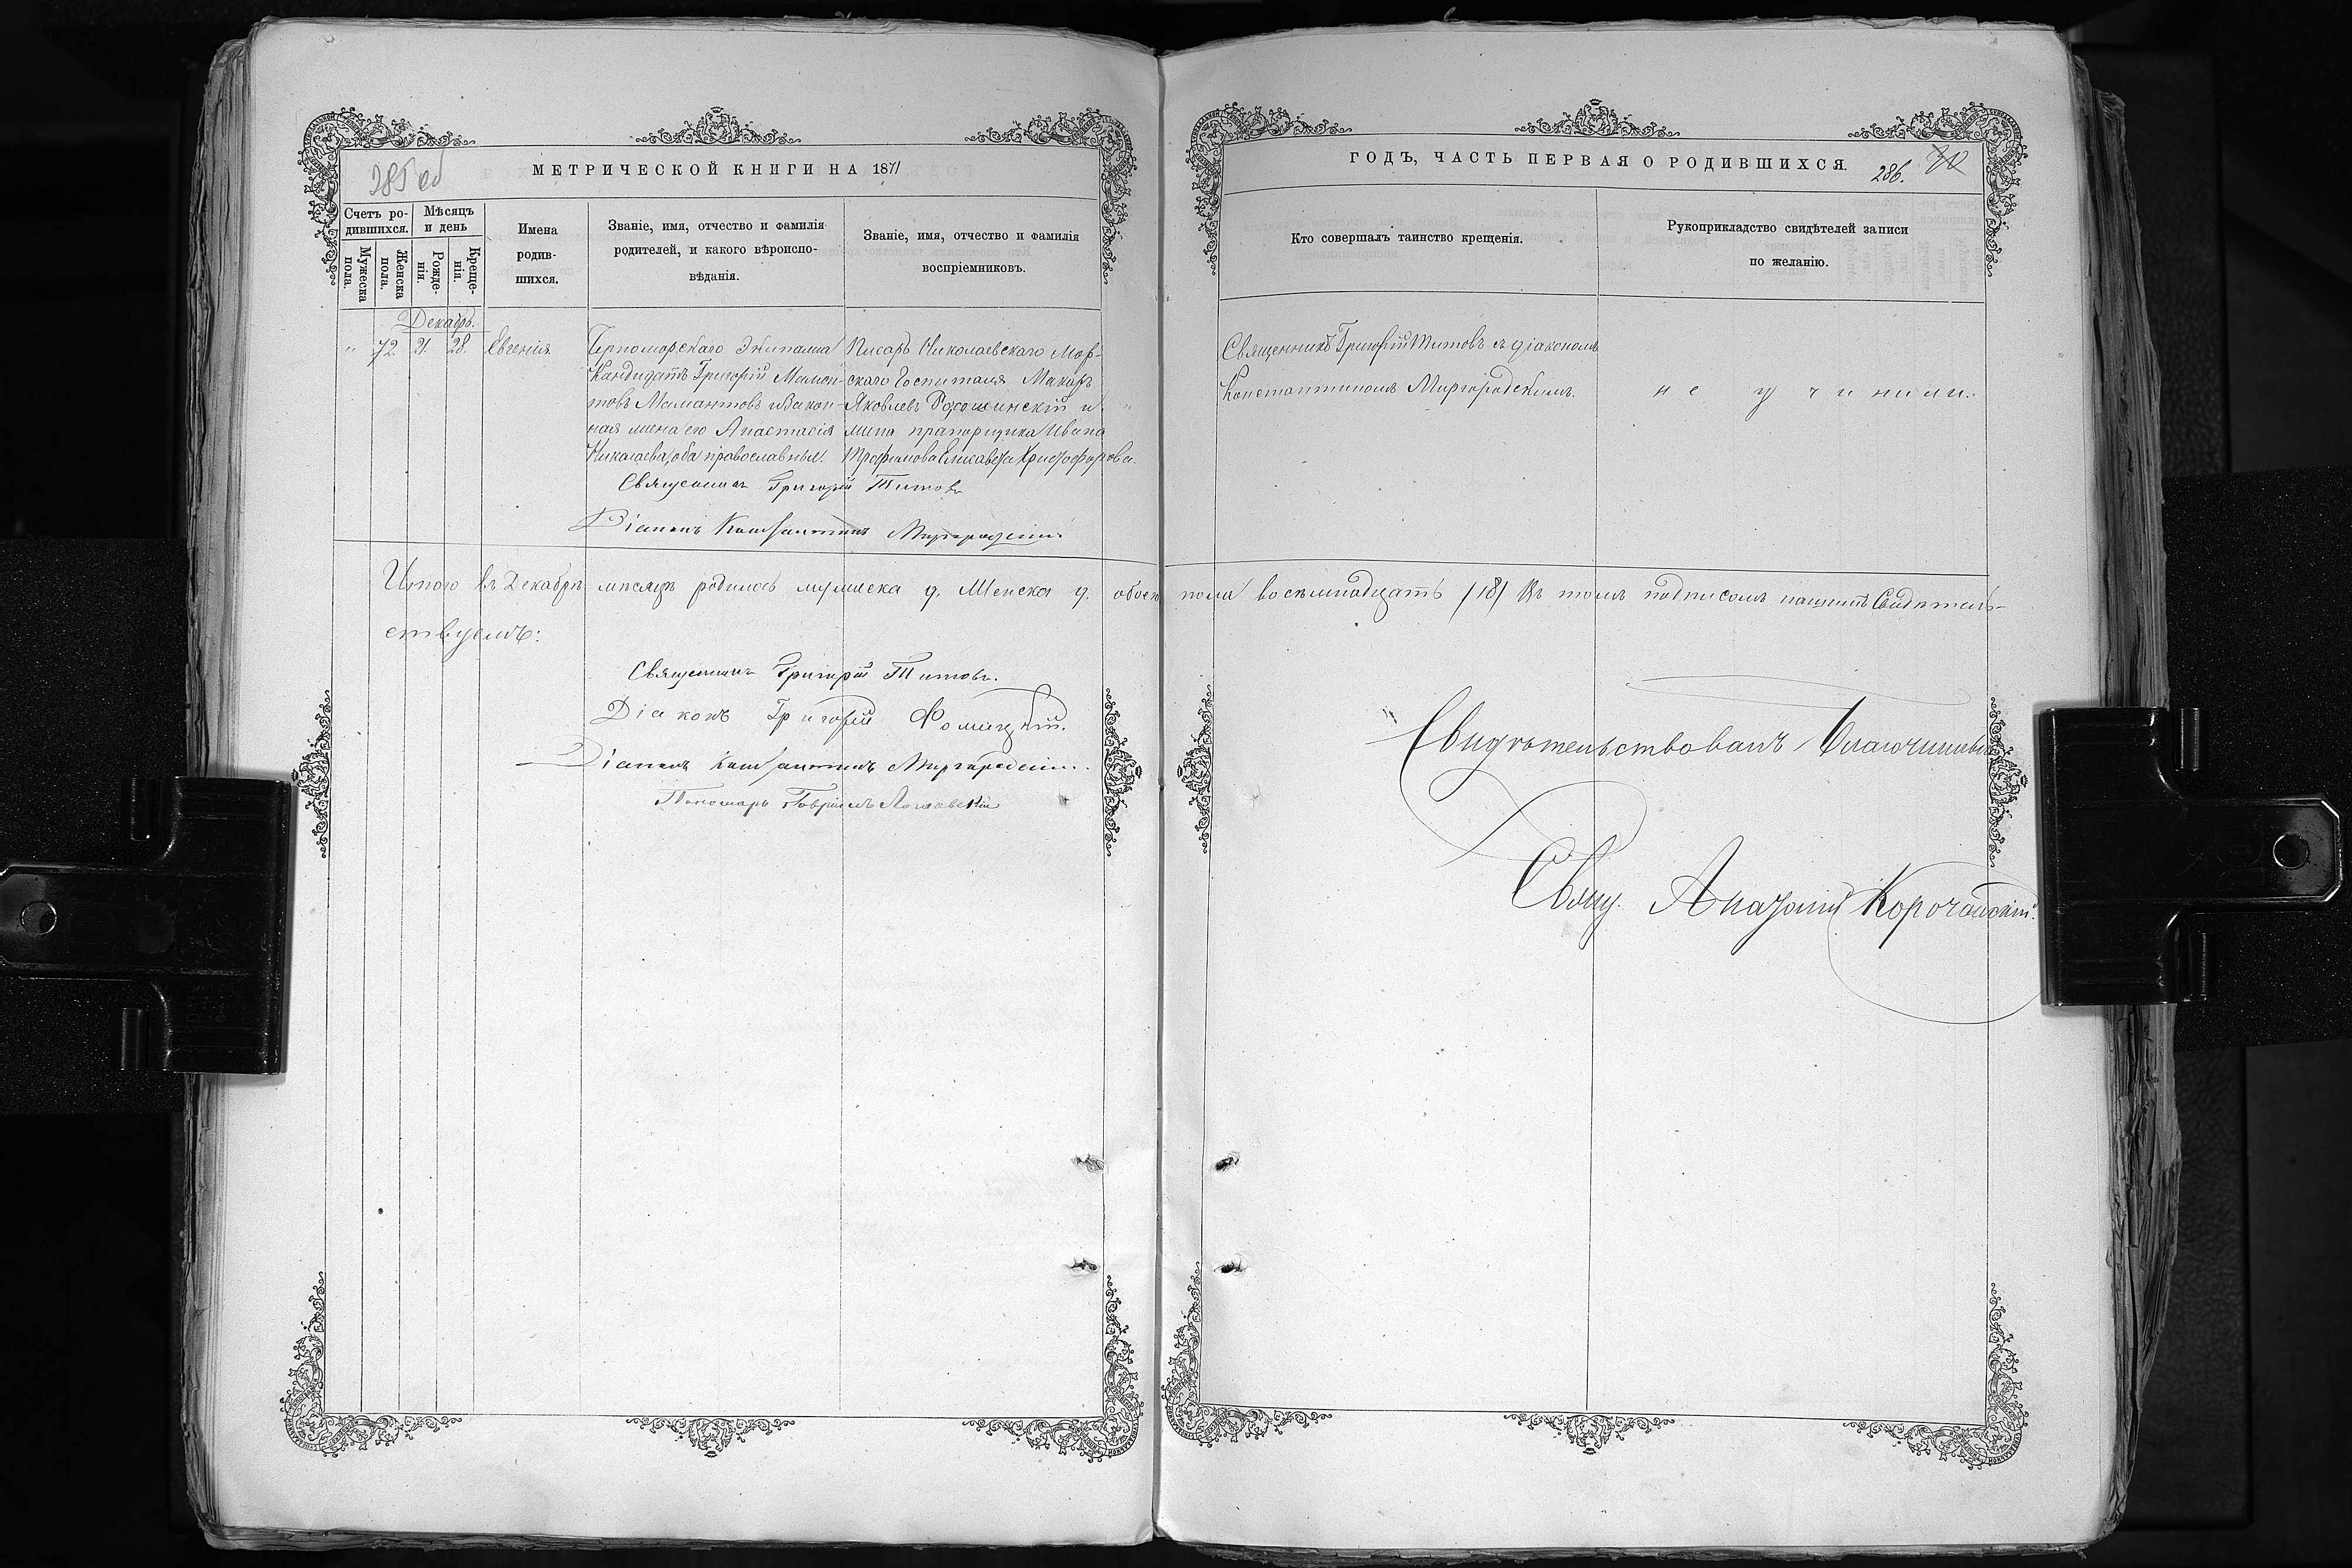 285 об
МЕТРИЧЕСКОЙ КНИГИ НА 1871
Счетъ ро-
дившихся.
Мѣсяцъ
и день
Мужеска
пола.
Женска
пола.
Рожде-
нія.
Креще-
нія.
Имена
родив-
шихся.
Званіе, имя, отчество и фамилія
родителей, и какого вѣроиспо-
вѣданія.
Званіе, имя, отчество и фамилія
воспріемниковъ.
Декабрь.
" 72 21. 28. Евгенія
Черноморскаго Экипажа
Кандидатъ Григорій Маман-
товъ Мамантовъ и закон-
ная жена его Анастасія
Николаева, оба православные.
Писарь Николаевскаго Мор-
скаго Госпиталя Макаръ
Яковлевъ и
жена прапорщика Ивана
Трофимова Елисавета Христофорова.
Священникъ Григорій Титовъ
Діаконъ Константинъ Миргородскій
Итого въ Декабрѣ мѣсяцѣ родилось мужеска 9. Женска 9. обоего
ствуемъ:
Священникъ Григорій Титовъ.
Діаконъ Григорій
Діаконъ Константинъ Миргородскій.
Пономарь Гавріилъ
ГОДЪ, ЧАСТЬ ПЕРВАЯ О РОДИВШИХСЯ.
286.
Кто совершалъ таинство крещенія.
Рукоприкладство свидѣтелей записи
по желанію.
Священникъ Григорій Титовъ съ діакономъ
Константиномъ Миргородскимъ.
не учинили.
пола восемнадцать /18/ Въ томъ подписомъ нашимъ Свидѣтель-
Свидѣтельствовалъ Благочинный
Свящ. Корочанскій.